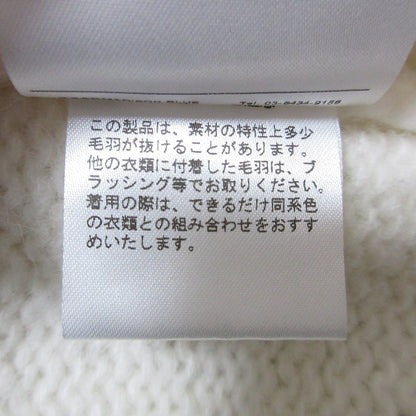 Tel. 03-6434-9156
この製品は、素材の特性上多少
毛羽が抜けることがあります。
他の衣類に付着した毛羽は、ブ
ラッシング等でお取りください。
着用の際は、できるだけ同系色
の衣類との組み合わせをおすす
めいたします。